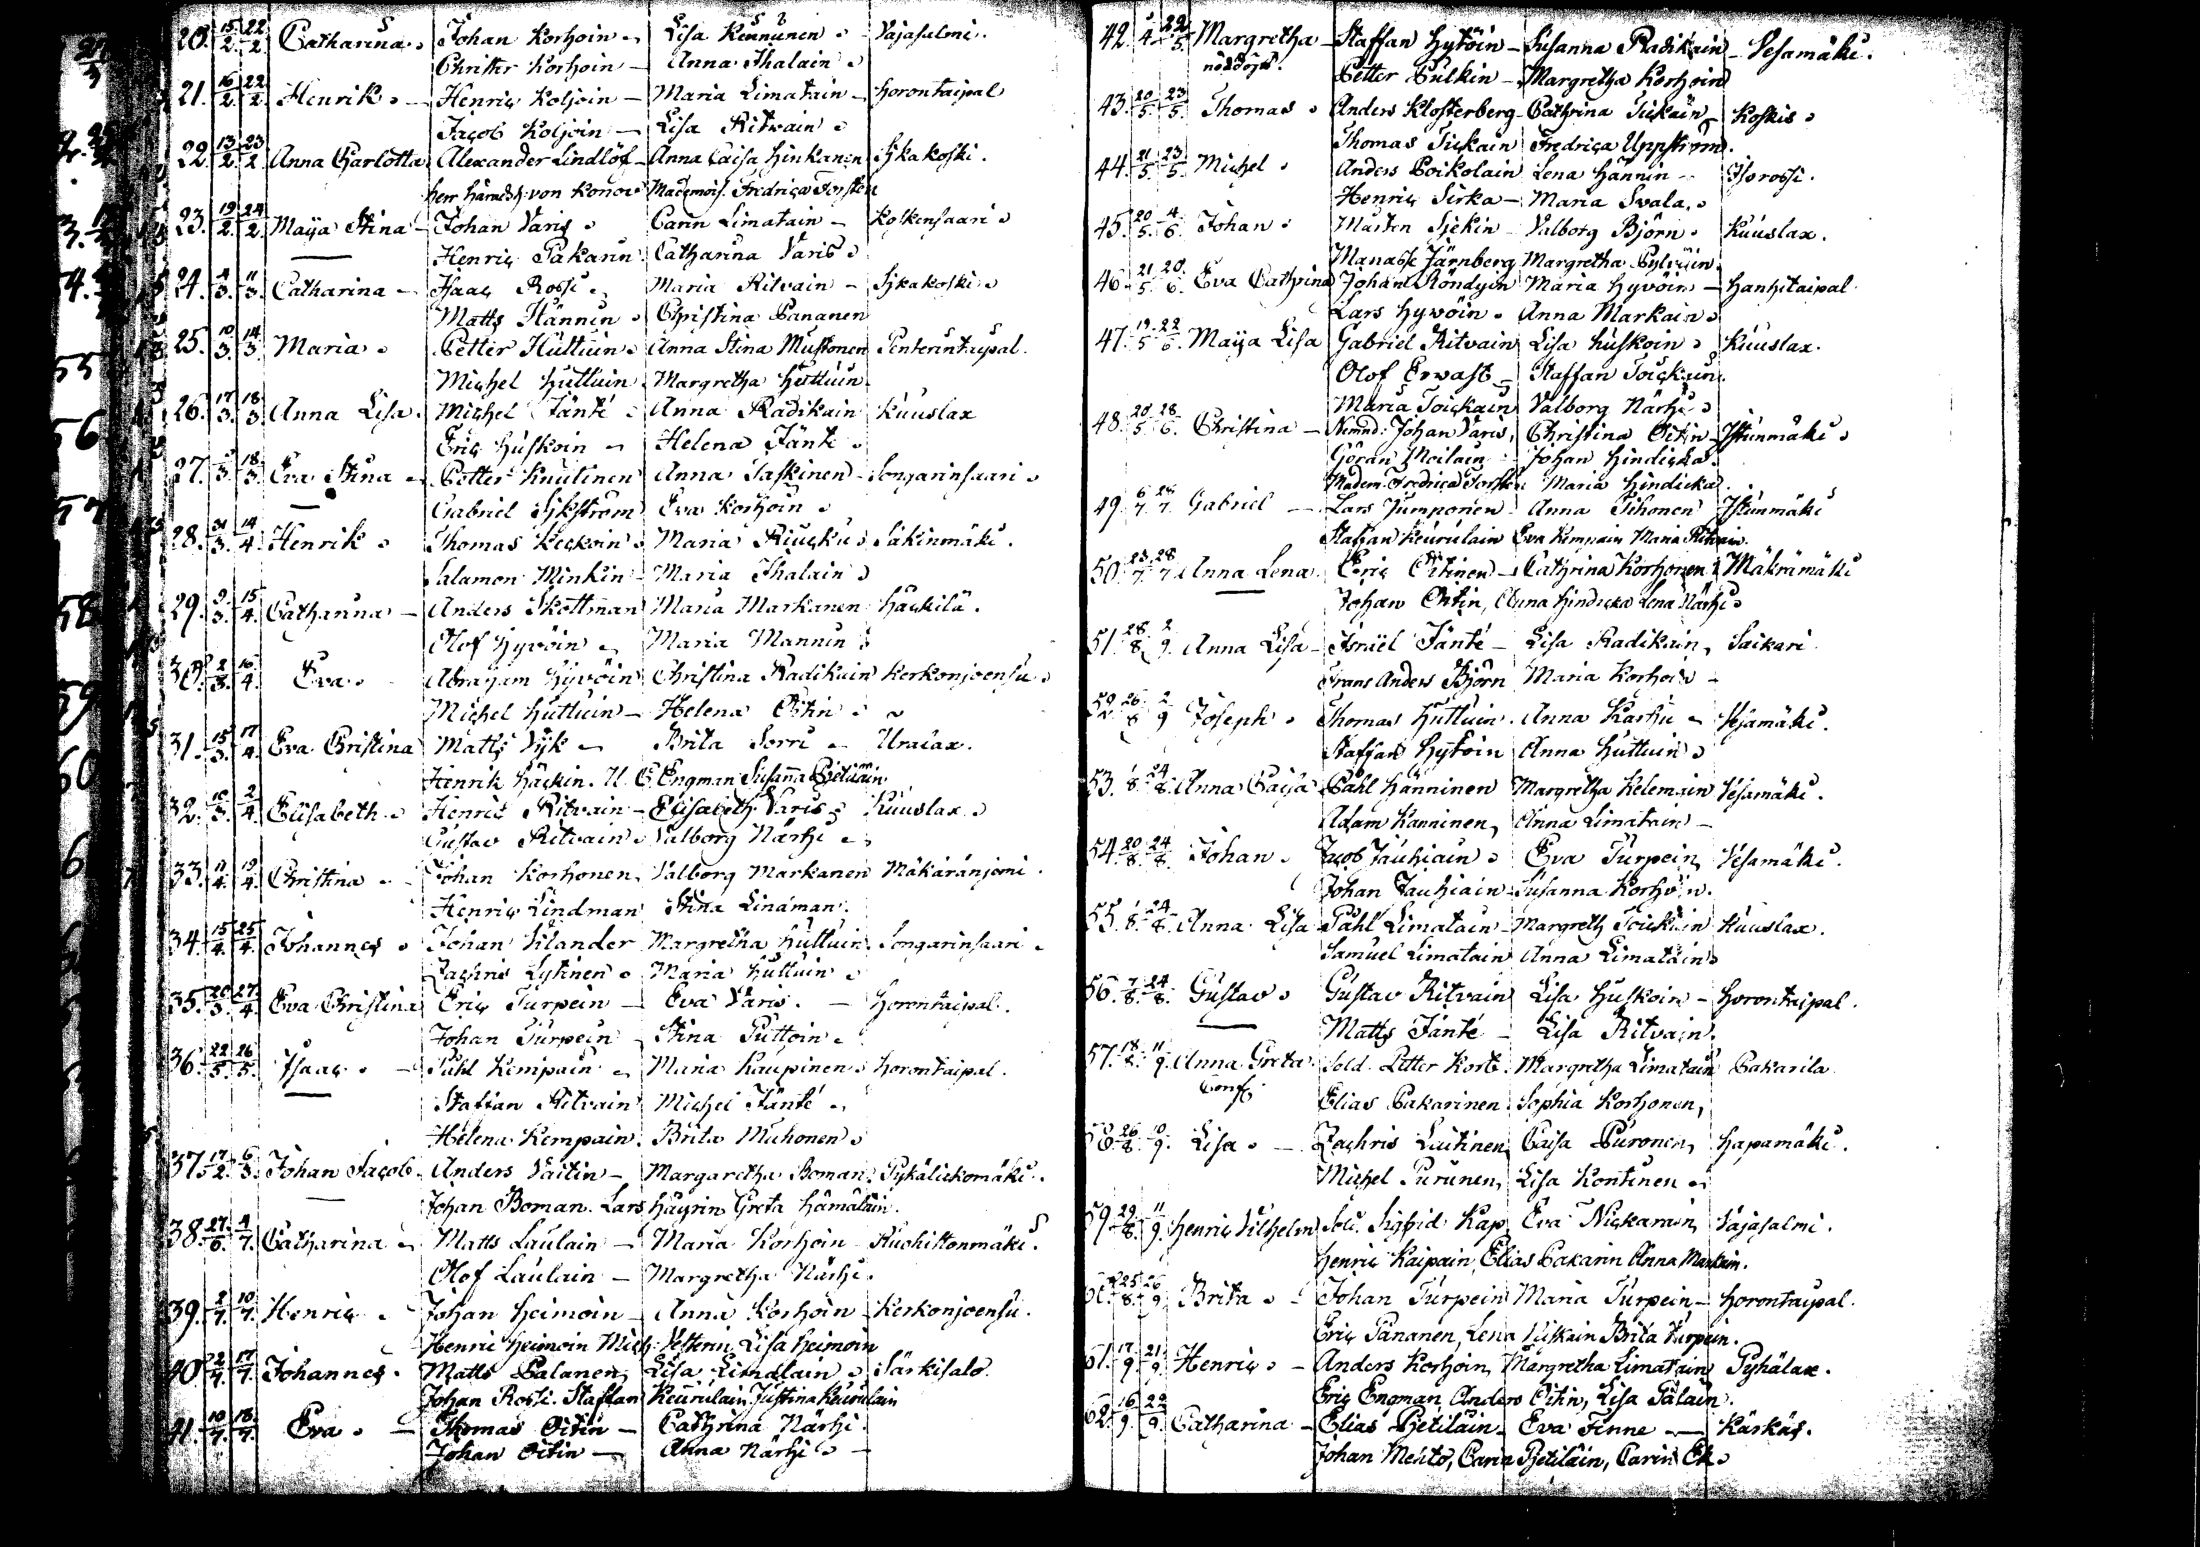 20. 15/2. 22/2 Catharina Johan Korhoin Lisa Kinnunen Vajasalmi.
Christer Korhoin Anna Ihalain
21. 16/2. 22/2 Henrik Henric Koljoin Maria Limatain Horontaipal
Jacob Koljoin Lisa Ritvain
22. 13/2. 23/2 Anna Charlotta Alexander Lindlöf Anna Caisa Hinkanen Sikakoski.
Herr Häradsh. von Konow Mademois. Fredrica Forsten
23. 19/2. 24/2. Maija Stina Johan Varis Carin Limatain Koskensaari
Henric Pakarin Catharina Varis
24. 4/3. 11/3. Catharina Isaac Rossi Maria Ritvain Sikakoski
Matts Hännin Christina Pananen
25. 10/3. 14/3. Maria Petter Huttuin Anna Stina Mustonen Penterintaipal.
Michel Huttuin Margretha Huttuin
26. 17/3. 18/3 Anna Lisa Michel Jänté Anna Radikain Kuuslax
Eric Huskoin Helena Jänté
27. 3. 18/3. Eva Stina Petter Knutinen Anna Taskinen Songarinsaari
Gabriel Sikström Eva Korhoin
28. 31/3. 14/4. Henrik Thomas Keckoin Maria Riucku Säkinmäki.
Salamon Minkin Maria Ihalain
29. 9/3. 15/4. Catharina Anders Skottman Maria Markanen Häckilä.
Olof Hyvöin Maria Mannin
30. 2/3. 16/4. Eva Abraham Hyvöin Christina Radikain Kerkonjoensu
Michel Huttuin Helena Oitin
31. 15/3. 17/4 Eva Christina Matts Vik Brita Sorri Uralax.
Henrik Häckin. U. C. Engman Susanna Pietiläin
32. 10/3. 2/4 Elisabeth Henric Ritvain Elisabeth Varis Kuuslax
Gustav Ritvain Valborg Närhi
33. 11/4. 19/4. Christina Johan Korhonen Valborg Markanen Mäkäränjemi.
Henric Lindman Stina Lindman.
34. 15/4. 25/4. Johannes Johan Silander Margretha Huttuin Songarinsaari
Zachris Lytinen Maria Huttuin
35. 20/3. 27/4. Eva Christina Eric Turpein Eva Varis. Horontaipal.
Johan Turpein Stina Puttoin
36. 22/5. 26/5. Isaac Påhl Kempain Maria Kaupinen Horontaipal.
Staffan Ritvain Michel Jänté
Helena Kempain. Brita Muhonen
37. 17/2. 6/3. Johan Jacob Anders Vaitin Margaretha Boman. Pykälickomäki.
Johan Boman. Lars Häyrin Greta Hämäläin.
38. 27/6. 4/7. Catharina Matts Laulain Maria Korhoin Ruohittonmäki.
Olof Laulain Margretha Närhi.
39. 2/7. 10/7. Henric Johan Heimoin Anna Korhoin Kerkonjoensu.
Henric Heimoin Mich. Vesterin, Lisa Heimoin
40. 2/7. 17/7. Johannes. Matts Palanen Lisa Limatain Särkisalo.
Johan Rossi. Staffan Keurulain, Justina Keurulain
41. 10/7. 18/7. Eva Thomas Oitin Cathrina Närhi.
Johan Oitin Anna Närhi
42. 4. 22/5. Margretha Staffan Hytöin Susanna Radikain Vesamäki.
nöddopt. Petter Pulkin Margretha Korhoin
43. 20/5. 23/5. Thomas Anders Klosterberg Cathrina Tickain Koskis
Thomas Tickain Fredrica Uppström.
44. 21/5. 23/5. Michel Anders Poikolain Lena Hännin
Henric Sirka Maria Svala.
45. 20/5. 4/6. Johan Mårten Sjekin Valborg Björn Kuuslax.
Manasse Järnberg Margretha Pylväin
46. 21/5 20/6. Eva Cathrina Johan Röndyin Maria Hyvöin Hanhitaipal
Lars Hyvöin Anna Markain
47. 19/5 22/6. Maija Lisa Gabriel Ritvain Lisa Huskoin Kuuslax.
Olof Ervast Staffan Toickain.
Maria Toickain Valborg Närhi
48. 20/5 28/6. Christina Nämnd. Johan Varis, Christina Oitin Istunmäki
Göran Moilain Johan Hindicka.
Madem. Fredrica Forsten Maria Hindicka.
49. 6/7. 28/7. Gabriel Lars Jumponen Anna Tihonen Istunmäki
Staffan Keurulain Eva Kempain Maria Ritvain.
50. 23/7. 28/7 Anna Lena. Eric Oitinen Cathrina Korhonen Mäkrämäki
Johan Oitin, Anna Hindicka Lena Närhi
51. 28/8. 2/9. Anna Lisa Israël Jänté Lisa Radikain, Saikari
Frans Anders Björn Maria Korhoin
52. 26/8 2/9 Joseph Thomas Huttuin. Anna Karhu Vesamäki.
Staffan Hytöin Anna Huttuin
53. 1/8. 24/8. Anna Caisa Påhl Hänninen Margretha Kelemain Vesamäki.
Adam Kanninen, Anna Limatain
54. 20/8. 24/8. Johan Jacob Jauhiain Eva Turpein Vesamäki.
Johan Jauhiain Susanna Korhoin.
55. 1/8. 24/8. Anna Lisa Påhl Limatain Margreth Toickain Kuuslax.
Samuel Limatain Anna Limatain
56. 7/8. 24/8. Gustav Gustav Ritvain Lisa Huskoin Horontaipal.
Matts Jänté Lisa Ritvain.
57. 18/8. 11/9. Anna Greta. Sold. Petter Korte Margretha Limatain Pakarila
Conf. Elias Pakarinen. Sophia Korhonen,
58 26/8. 10/9. Lisa Zachris Laitinen Caisa Puronen, Hapamäki.
Michel Purunen, Lisa Kontinen
59. 29/8. 11/9. Henric Vilhelm Sold. Sigfrid Kap Eva Nickarain, Vajasalmi.
Henric Kaipain, Elias Pakarin Anna Markain.
60. 25/8. 26/9. Brita Johan Turpein Maria Turpein Horontaipal.
Eric Pananen, Lena Brita Turpein.
61. 17/9. 21/9. Henric Anders Korhoin, Margretha Limatain Pyhälax.
Eric Engman, Anders Oitin, Lisa Pälain.
62. 16/9. 22/9. Catharina Elias Pietiläin. Eva Finne Kärkäs.
Johan Mehto, Carin Pietiläin, Carin Ek